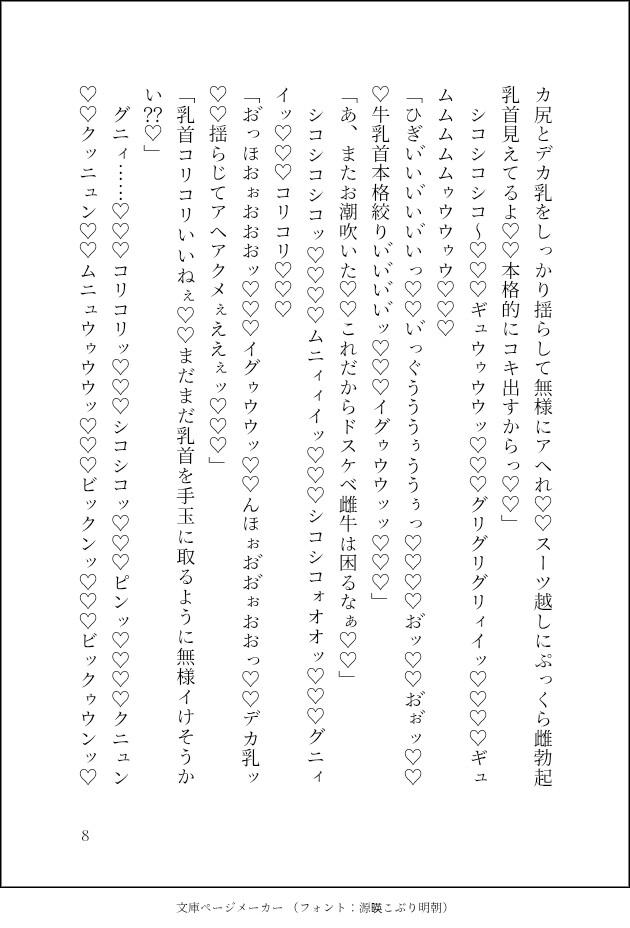 カ尻とデカ乳をしっかり揺らして無様にアヘれ♡♡スーツ越しにぷっくら雌勃起
乳首見えてるよ♡♡本格的にコキ出すからっ♡♡」
シコシコシコ〜♡♡♡ギュウゥウウッ♡♡♡グリグリグリィイッ♡♡♡♡ギュ
ムムムムムゥウウゥウ♡♡♡
「ひぎい゛いい゛いい゛いっ♡♡い゛っぐうううぅううぅっ♡♡♡♡お゛ッ♡♡お゛ぉ゛ッ♡♡
♡牛乳首本格絞りい゛い゛い゛い゛ッ♡♡♡イグゥウウッッ♡♡♡」
「あ、またお潮吹いた♡♡これだからドスケベ雌牛は困るなぁ♡♡」
シコシコシコッ♡♡♡♡ムニィィイッ♡♡♡シコシコォオオッ♡♡♡グニィ
イッ♡♡♡コリコリ♡♡♡
「お゛っほおぉおおおッ♡♡♡イグゥウウッ♡♡んほぉお゛お゛ぉおおっ♡♡デカ乳ッ
♡♡揺らじてアヘアクメぇええぇッ♡♡♡」
「乳首コリコリいいねぇ♡♡まだまだ乳首を手玉に取るように無様イけそうか
い??♡」
グニィ……♡♡♡コリコリッ♡♡♡シコシコッ♡♡♡ピンッ♡♡♡♡クニュン
♡♡クッニュン♡♡ムニュウゥウウッ♡♡♡ビックンッ♡♡♡ビックゥウンッ♡
8
文庫ページメーカー（フォント：源暎こぶり明朝）